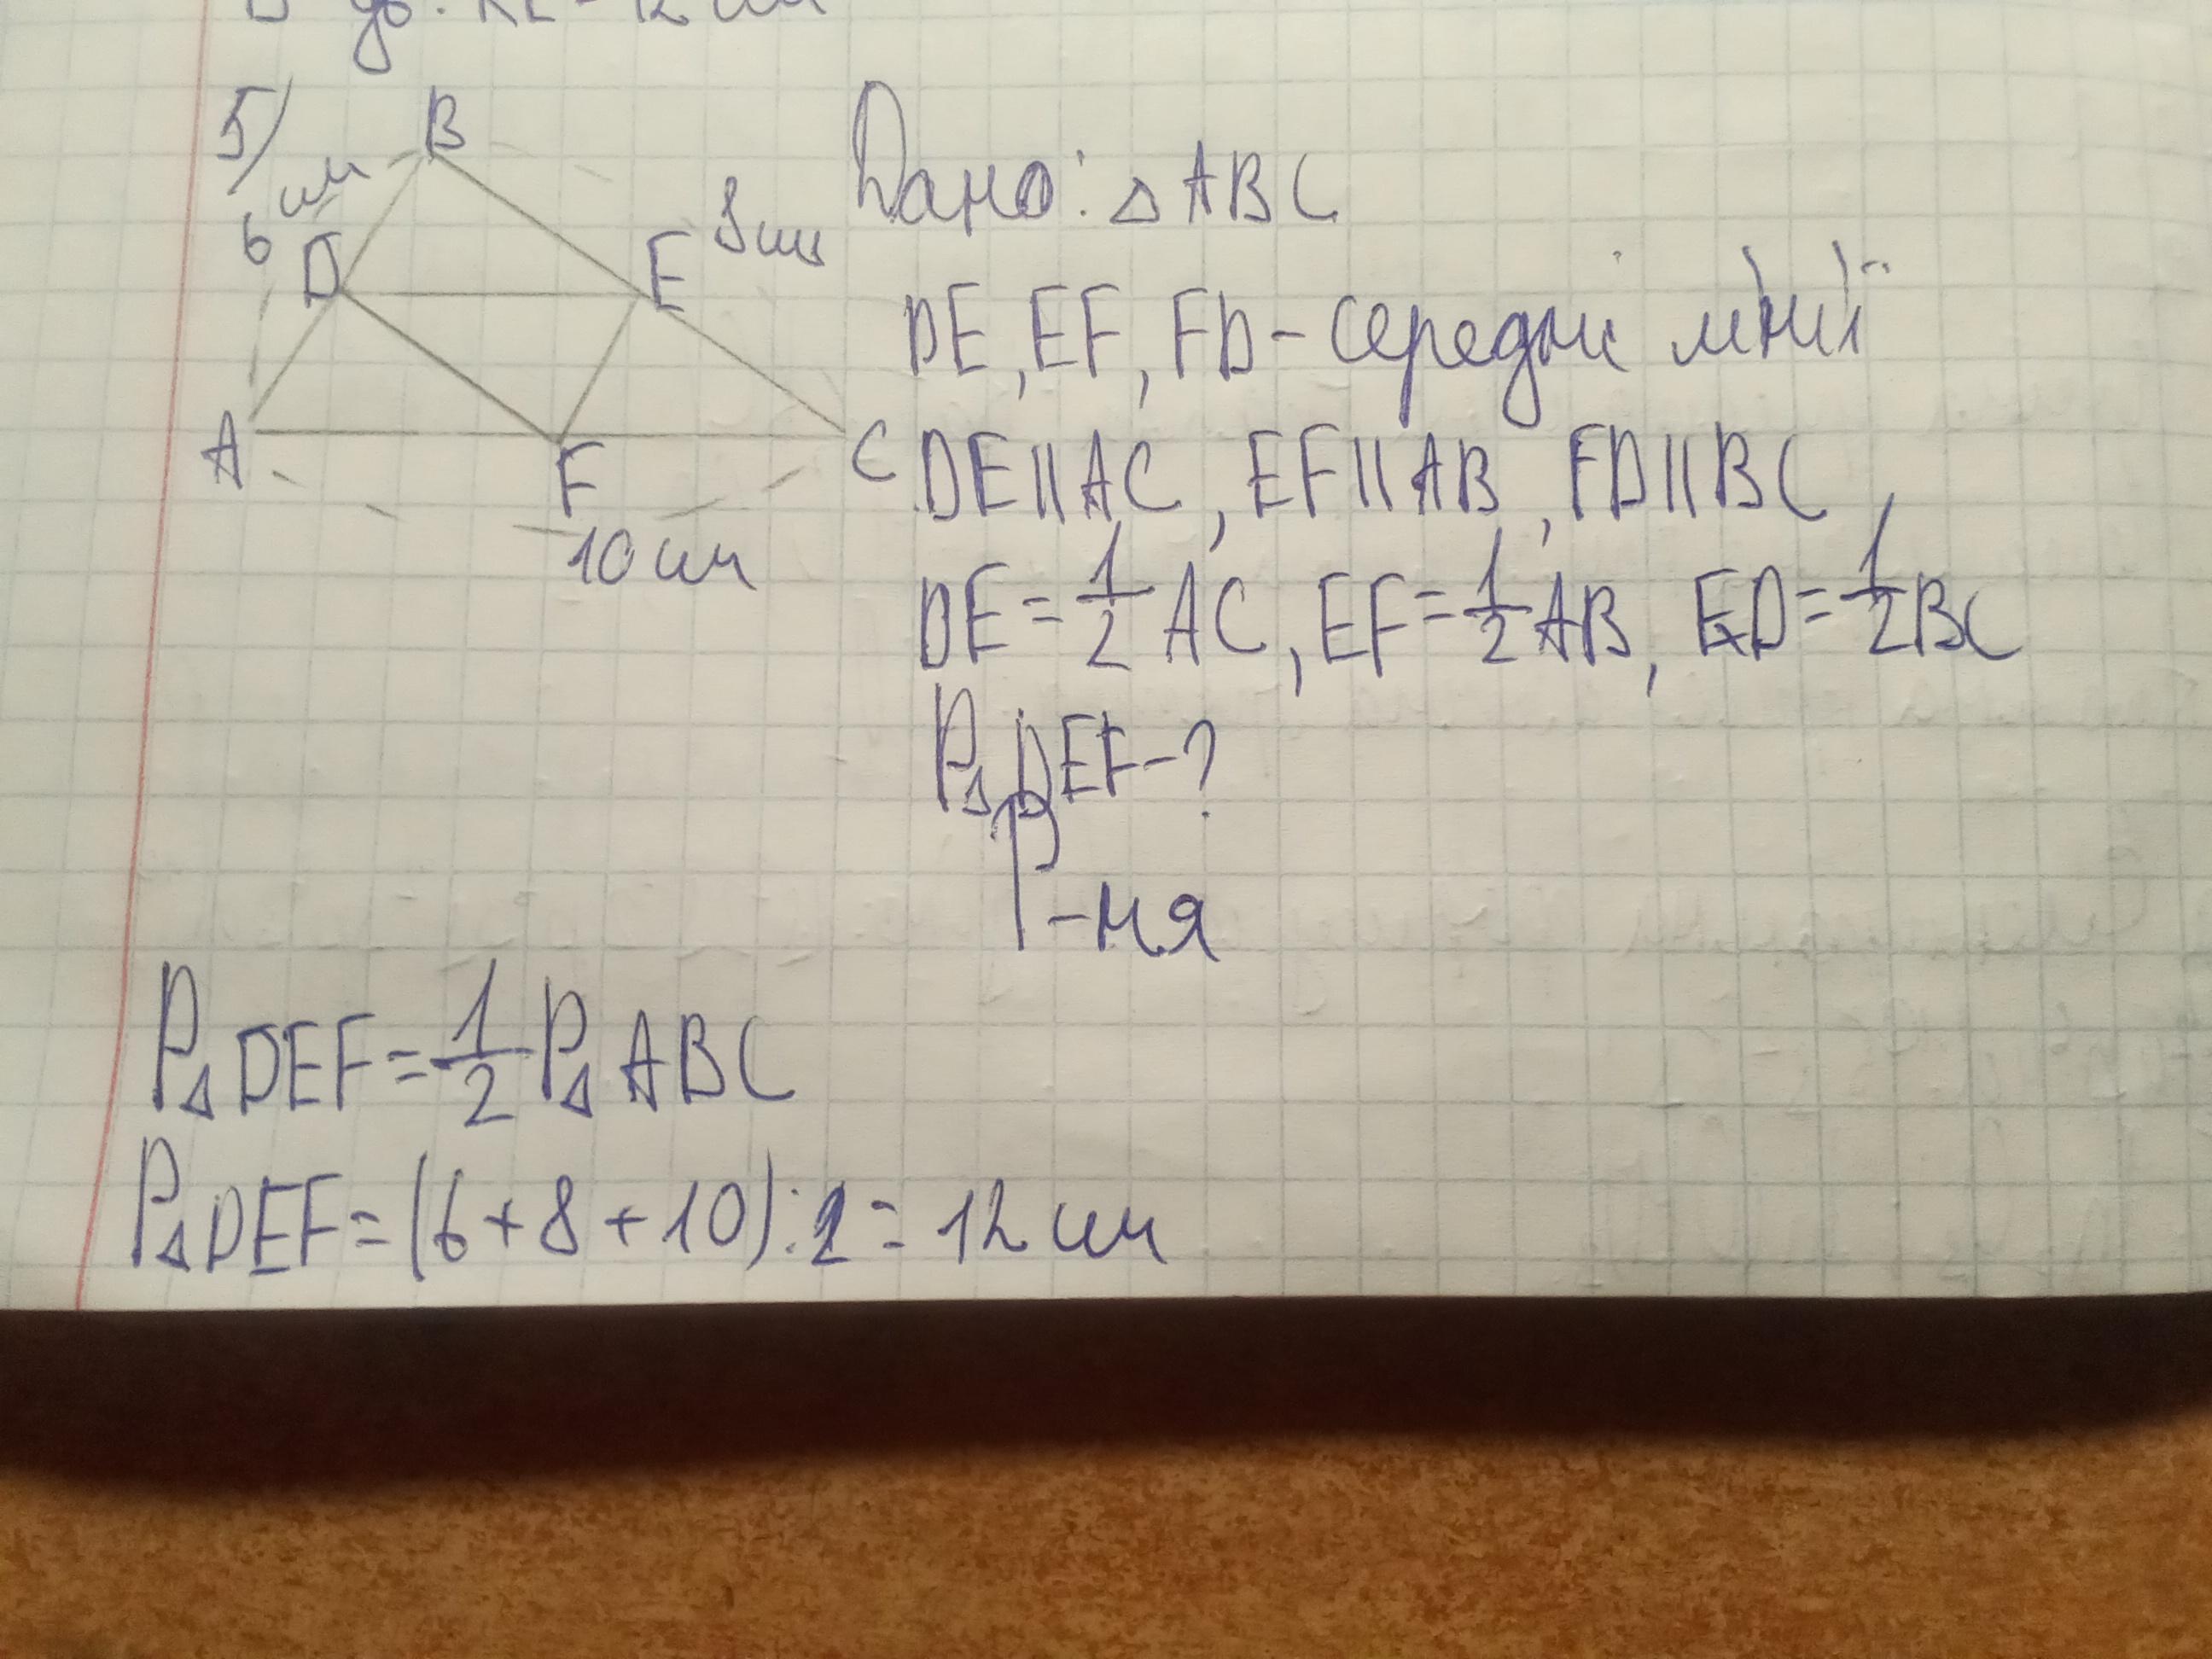 5/
B
6 см
D
E
8 см
A
F
C
10 см
Дано: △ABC
DE, EF, FD - середні лінії
DE||AC, EF||AB, FD||BC,
DE = 1/2 AC, EF = 1/2 AB, FD = 1/2 BC
P△DEF - ?
Р-ня
P△DEF = 1/2 P△ABC
P△DEF = (6 + 8 + 10) : 2 = 12 см